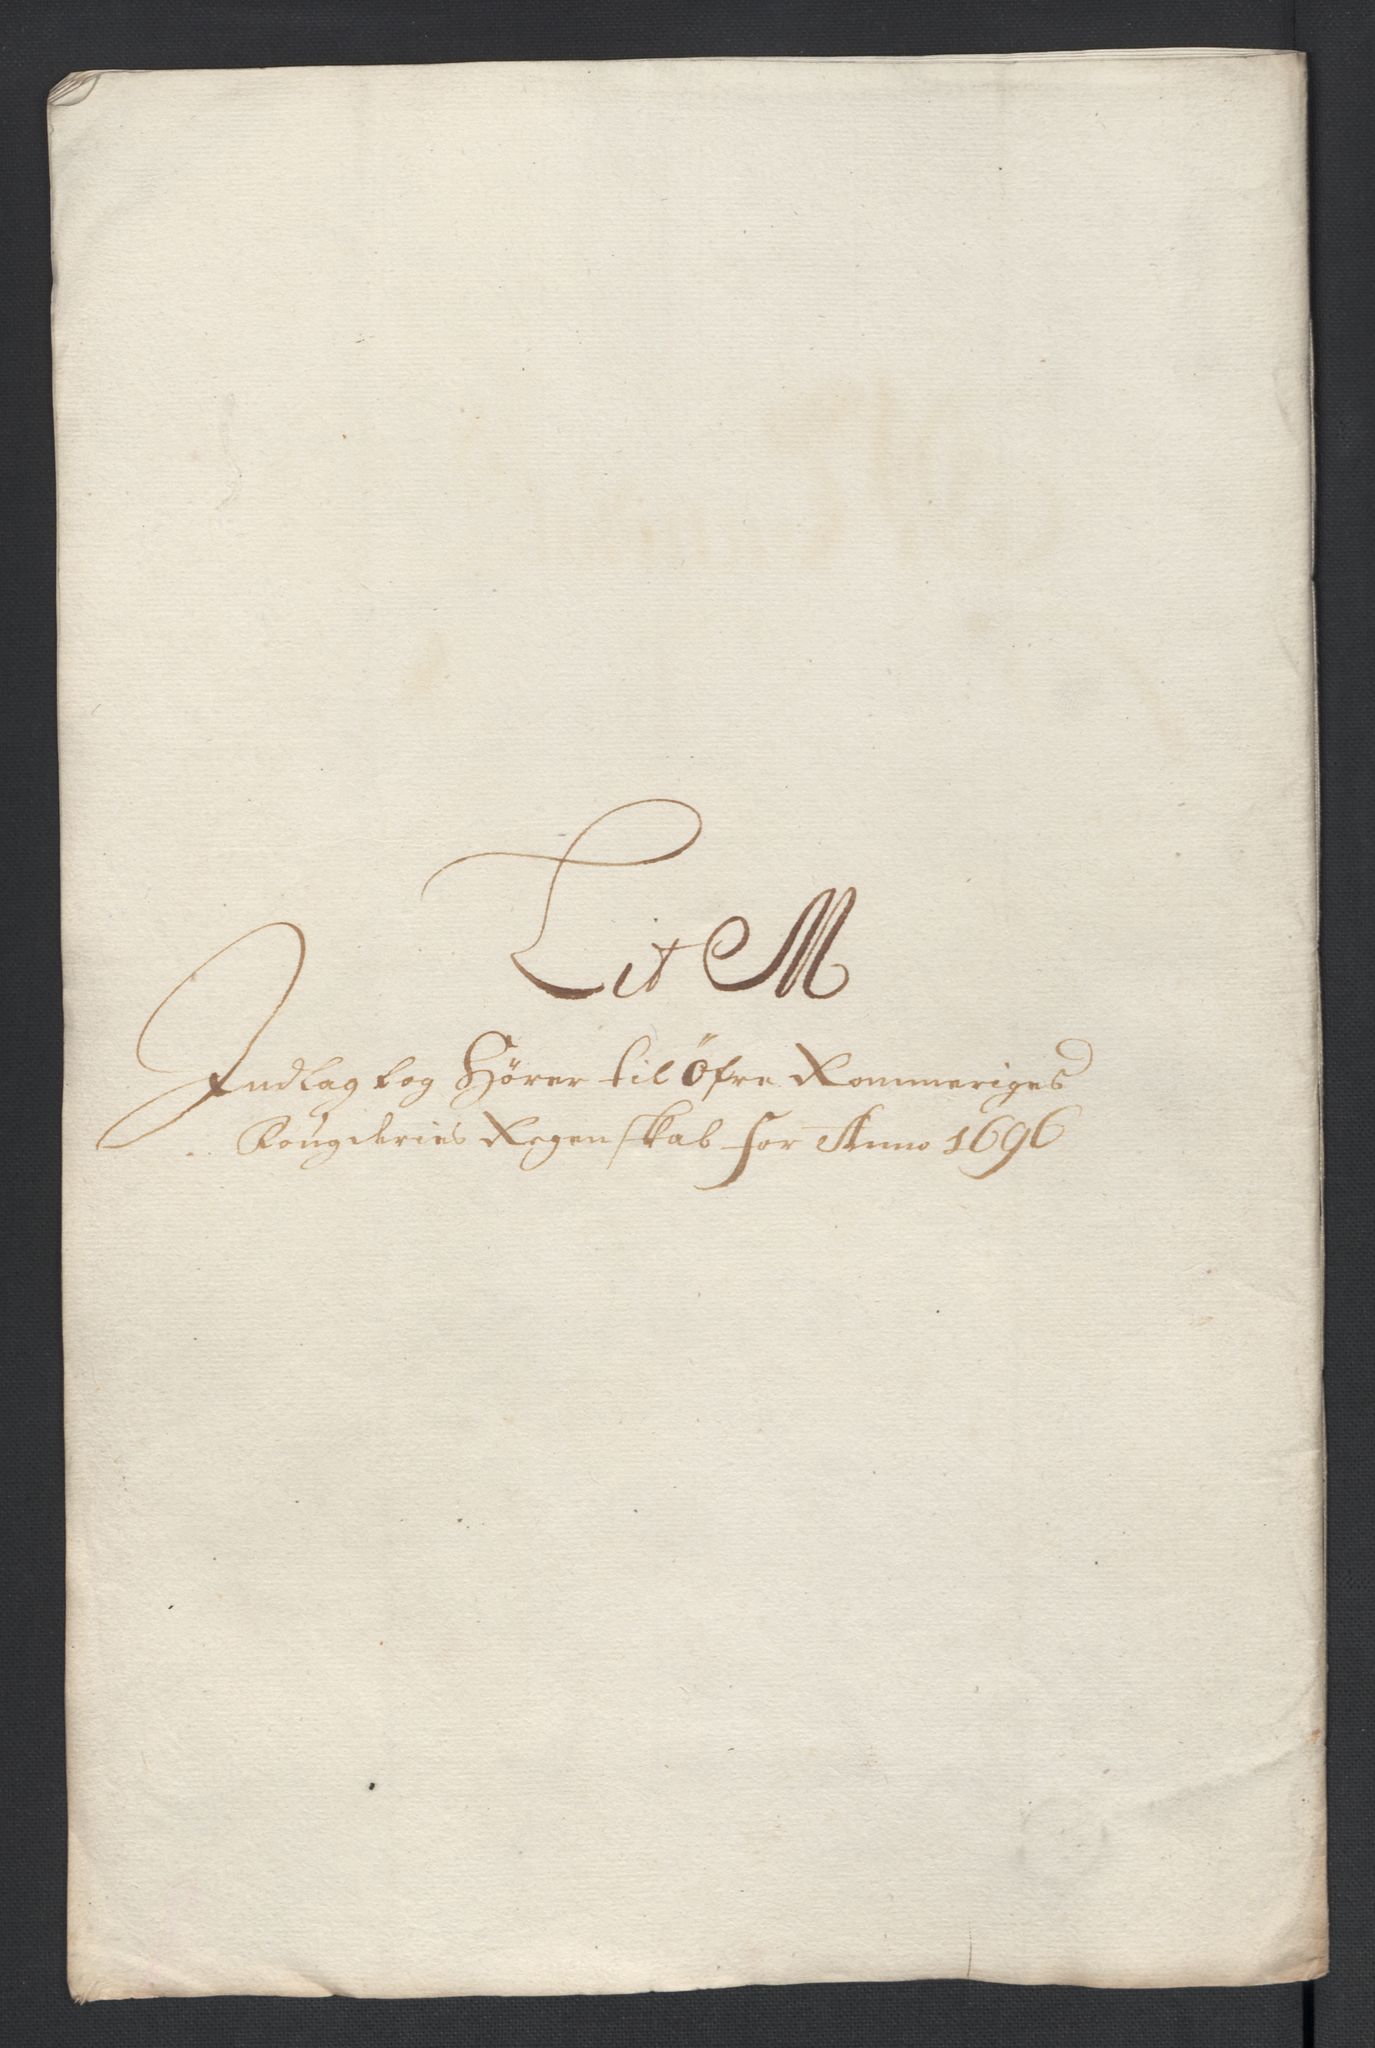 Lit M
Indlag og Hører til Øfre Rommeriges
Fougderies Regenskab for Anno 1696